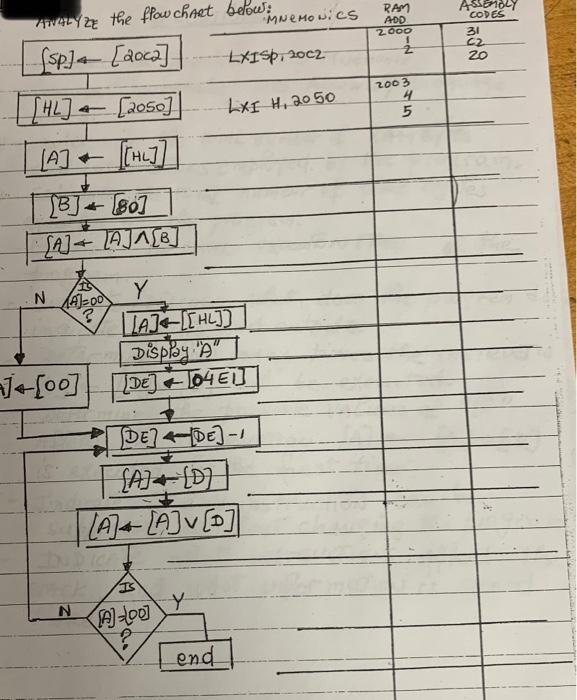 ANALYZE the flowchaet below:
MNEMONICS
RAM ADD
ASSEMBLY CODES
[SP] ← [20C2]
LXISP, 20C2
2000
1
2
31
C2
20
[HL] ← [2050]
LXI H, 2050
2003
4
5
[A] ← [[HL]]
[B] ← [80]
[A] ← [A] ∧ [B]
Is [A]=00 ?
N
Y
[A] ← [[HL]]
Display "A"
A] ← [00]
[DE] ← [04E1]
[DE] ← [DE] -1
[A] ← [D]
[A] ← [A] ∨ [D]
Is [A]=[00] ?
N
Y
end